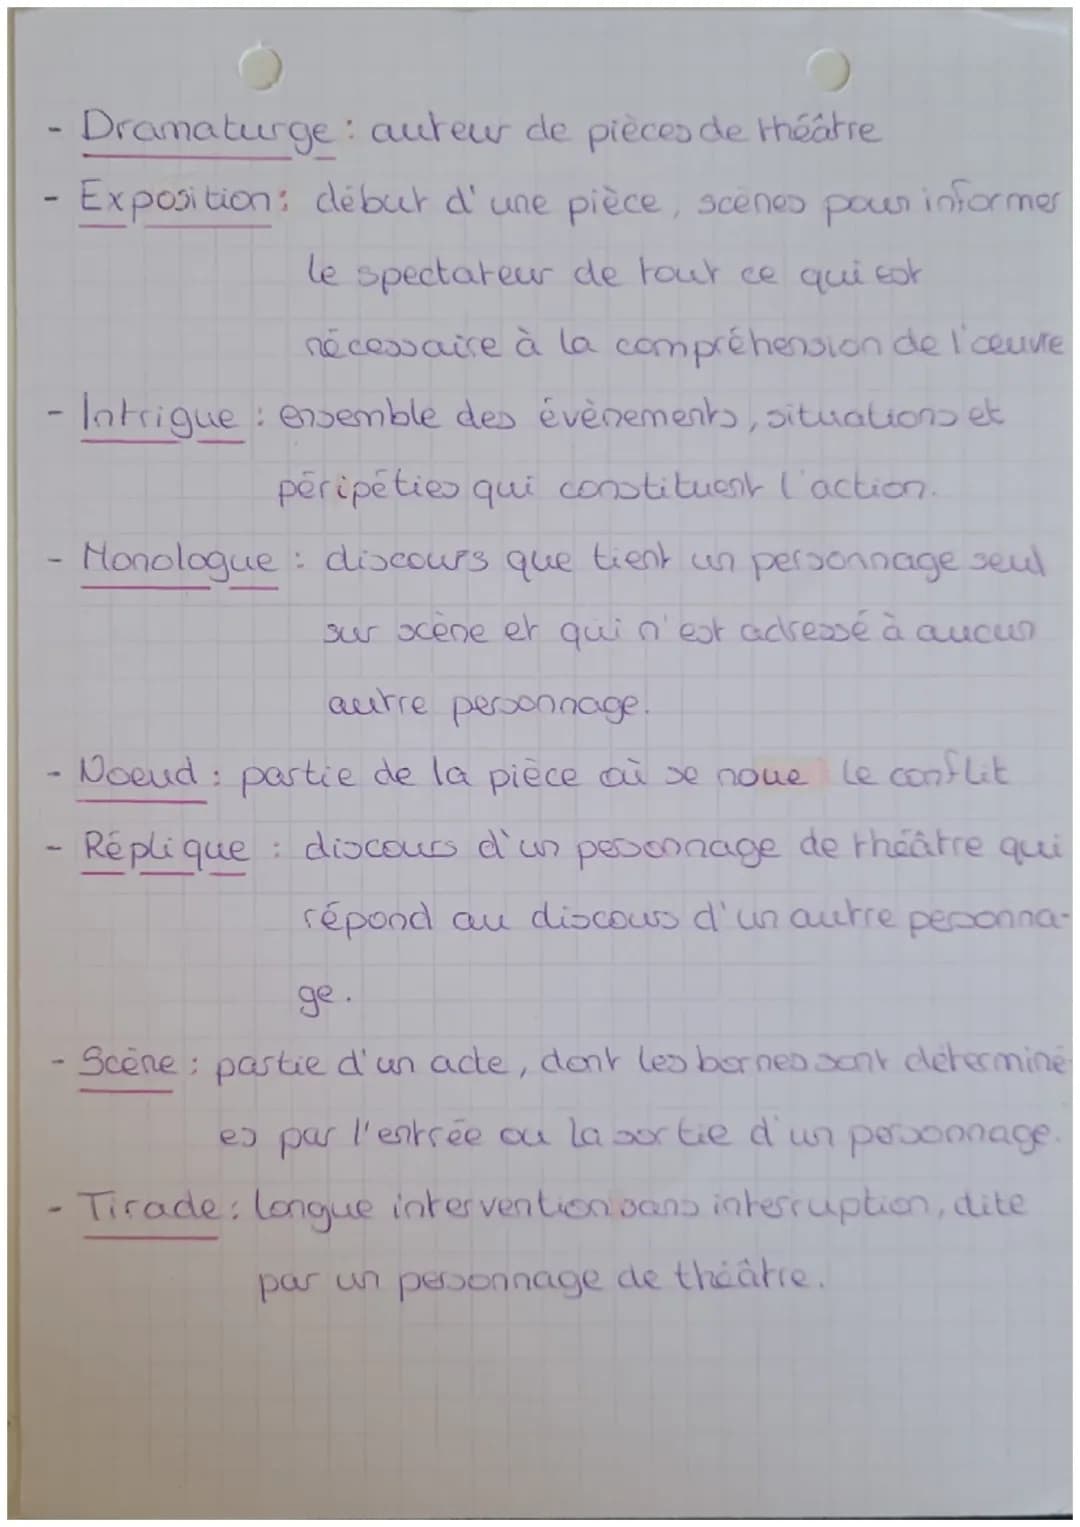 - Dramaturge : auteur de pièces de théâtre
- Exposition : début d'une pièce, scènes pour informer
le spectateur de tout ce qui est
nécessaire à la compréhension de l'œuvre
- Intrigue : ensemble des évènements, situations et
péripéties qui constituent l'action.
- Monologue : discours que tient un personnage seul
sur scène et qui n'est adressé à aucun
autre personnage.
- Noeud : partie de la pièce où se noue le conflit
- Réplique : discours d'un personnage de théâtre qui
répond au discours d'un autre personna-
ge.
- Scène : partie d'un acte, dont les bornes sont déterminé-
es par l'entrée ou la sortie d'un personnage.
- Tirade : longue intervention sans interruption, dite
par un personnage de théâtre.